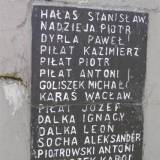 HAŁAS STANISŁAW
NADZIEJA PIOTR
DYRLA PAWEŁ
PIŁAT KAZIMIERZ
PIŁAT PIOTR
PIŁAT ANTONI
GOLISZEK MICHAŁ
KARAŚ WACŁAW
PIŁAT JÓZEF
DALKA IGNACY
DALKA LEON
SOCHA ALEKSANDER
PIOTROWSKI ANTONI
KAROL